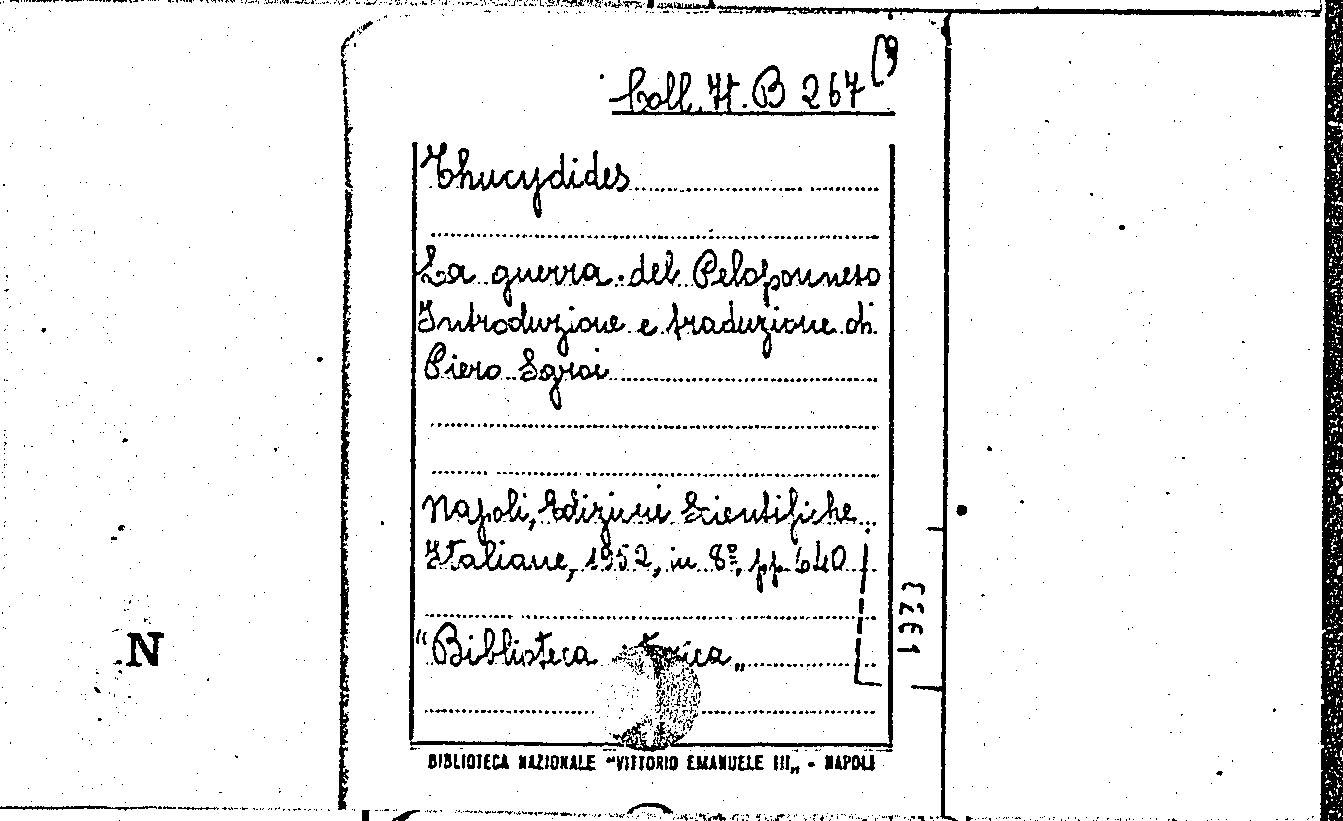 Coll. It. B 267 (3
Thucydides
La guerra del Peloponneso
Introduzione e traduzione di
Piero Sgroi
Napoli, Edizioni Scientifiche
Italiane, 1952, in 8º, pp 640
"Biblioteca storica„
BIBLIOTECA NAZIONALE "VITTORIO EMANUELE III„ - NAPOLI
N